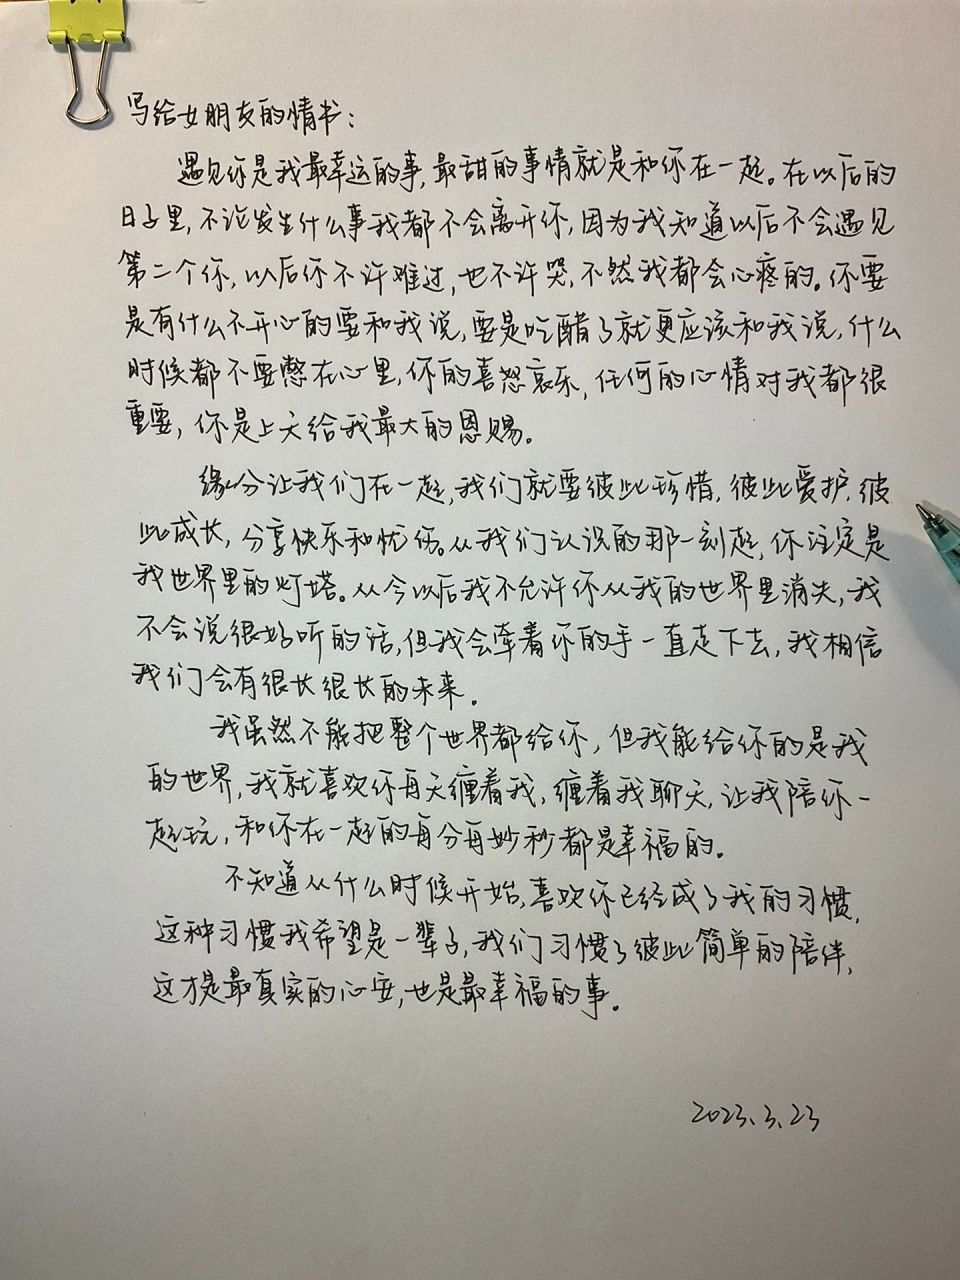 写给女朋友的情书：
遇见你是我最幸运的事，最甜的事情就是和你在一起。在以后的
日子里，不论发生什么事我都不会离开你，因为我知道以后不会遇见
第二个你，以后你不许难过，也不许哭，不然我都会心疼的。你要
是有什么不开心的要和我说，要是吃醋了就更应该和我说，什么
时候都不要憋在心里，你的喜怒哀乐，任何的心情对我都很
重要，你是上天给我最大的恩赐。
缘分让我们在一起，我们就要彼此珍惜，彼此爱护，彼
此成长，分享快乐和忧伤。从我们认识的那一刻起，你注定是
我世界里的灯塔。从今以后我不允许你从我的世界里消失，我
不会说很好听的话，但我会牵着你的手一直走下去，我相信
我们会有很长很长的未来。
我虽然不能把整个世界都给你，但我能给你的是我
的世界，我就喜欢你每天缠着我，缠着我聊天，让我陪你一
起玩，和你在一起的每分每妙秒都是幸福的。
不知道从什么时候开始，喜欢你已经成了我的习惯，
这种习惯我希望是一辈子，我们习惯了彼此简单的陪伴，
这才是最真实的心安，也是最幸福的事。
2023.3.23